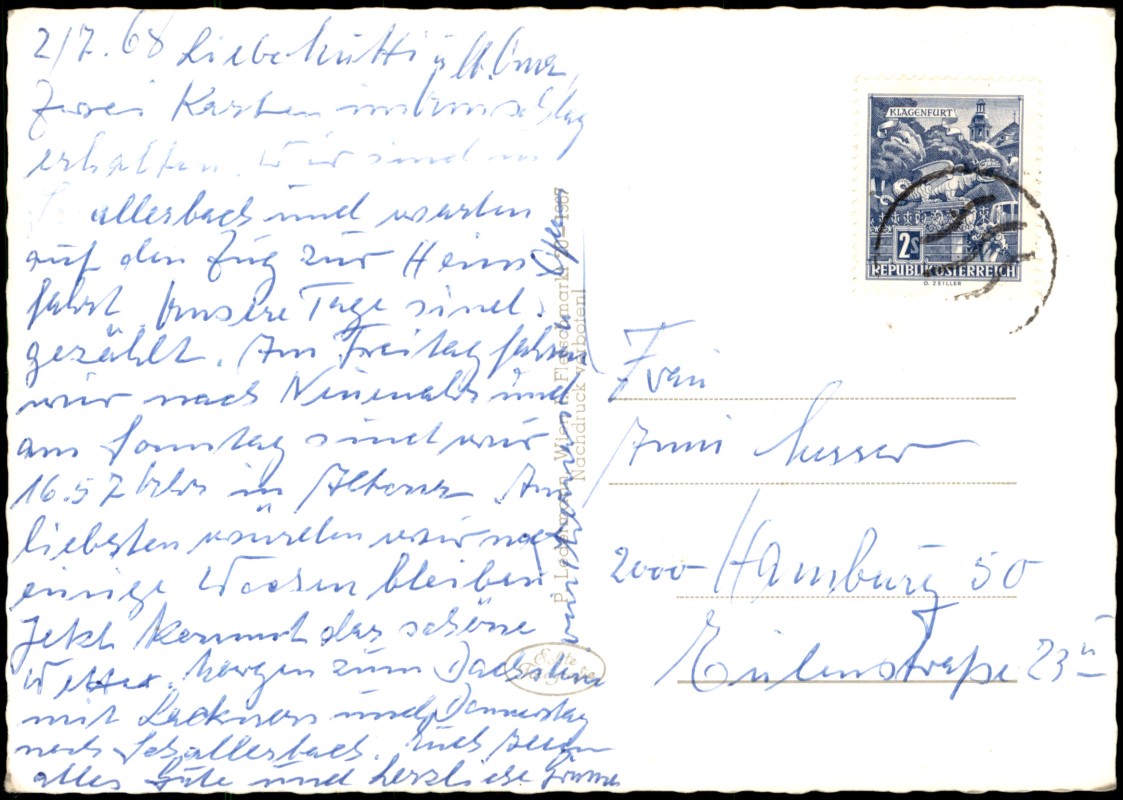 2/7.68 Liebe Mutti u
Zwei Karten im Umschlag
erhalten. Wir sind in
allerbach und warten
auf den Zug zur Heim
fahrt. Unsere Tage sind
gezählt. Am Freitag fahren
wir nach und
am Sonntag sind wir
16.57 Uhr in Altona. Am
liebsten würden wir noch
einige Wochen bleiben
Jetzt kommt das schöne
Wetter. Morgen zum Dachstein
mit und Donnerstag
nach Schallerbach. Euch
alles Gute und herzliche Grüße
P. Ledermann, Wien I, Fleischmarkt
Nachdruck verboten!
KLAGENFURT
2s
REPUBLIK ÖSTERREICH
O. ZEILLER
Frau
Anni
2000 Hamburg 50
Eulenstraße 23